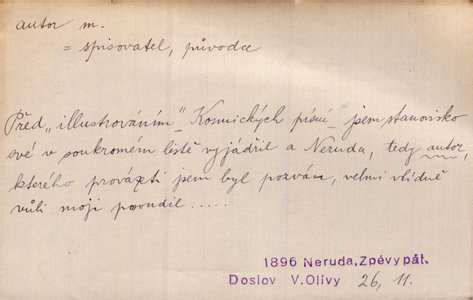 autor m.
= spisovatel, původce
Před „illustrováním“ Kosmických písní jsem stanovisko
své v soukromém listě vyjádřil a Neruda, tedy autor,
kterého prováz̶eti jsem byl pozván, velmi vlídně
vůli moji posoudil.....
1896 Neruda, Zpěvy pát.
Doslov V. Olivy 26, 11.